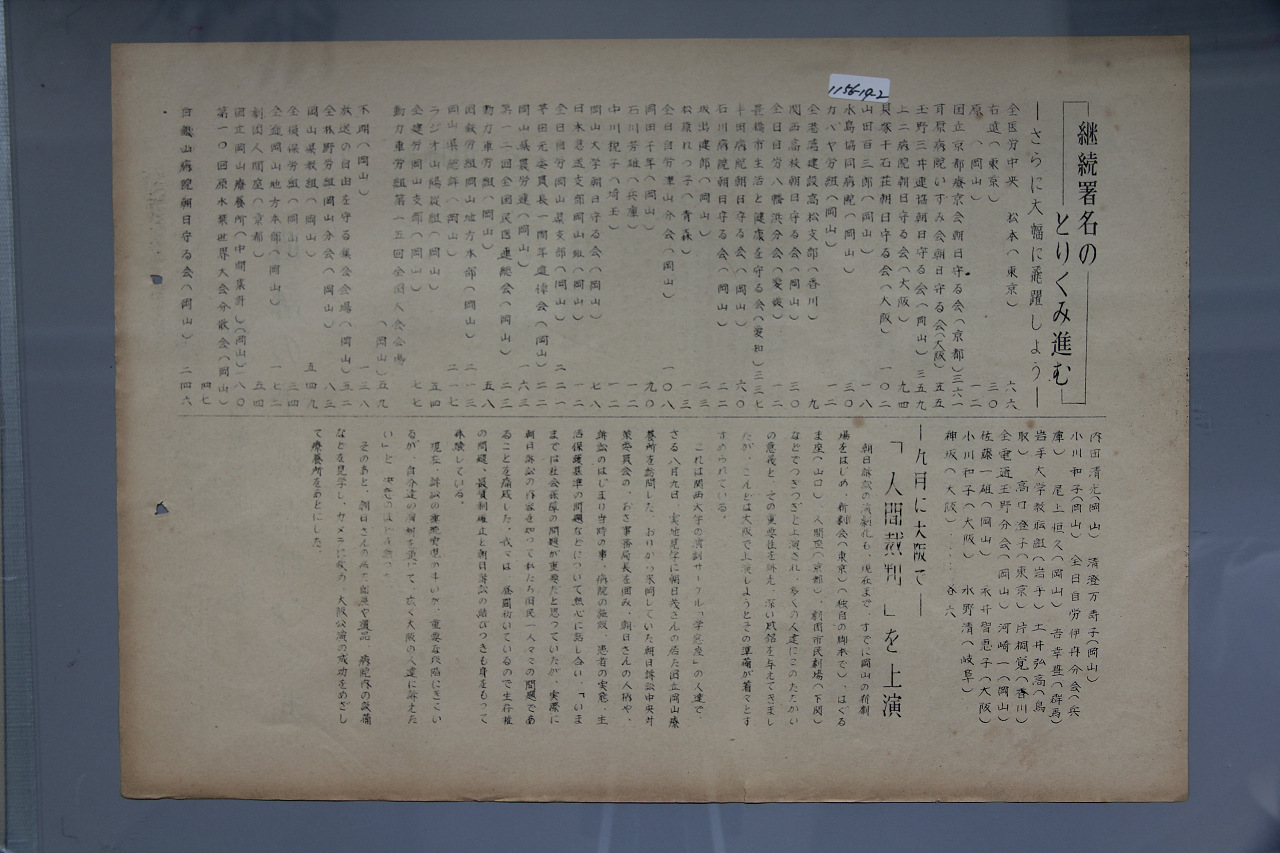 1156-19-2
継続署名の
とりくみ進む
―さらに大幅に飛躍しよう―
全医労中央 松本(東京) 六六
右遠(東京) 三〇
原 (岡山) 一二
国立京都療京会朝日守る会(京都)三六一
耳原病院いずみ会朝日守る会(大阪)五五
玉野三井造協朝日守る会(岡山)三五九
上二病院朝日守る会(大阪) 九四
貝塚千石荘朝日守る会(大阪) 一〇二
山田百三郎(岡山) 一一
水島協同病院(岡山) 三〇
カバヤ分組(岡山) 一二
全港湾建設高松支部(香川) 九
関西高校朝日守る会(岡山) 三〇
全日自労八幡浜分会(愛媛) 一二
豊橋市生活と健康を守る会(愛知)三三七
半田病院朝日守る会(岡山) 六〇
石川病院朝日守る会(岡山) 二二
坂出健郎(岡山) 二三
松原れつ子(青森) 一三
全日自労津山分会(岡山) 一〇八
岡田千年(岡山) 九〇
石川芳雄(兵庫) 一二
中川悦子(埼玉) 一一
岡山大学朝日守る会(岡山) 七八
全日自労岡山県支部(岡山) 二二一
岡山県農労連(岡山) 一六三
第一二回全国民医連総会(岡山) 二三
動力車労組(岡山) 五八
国鉄労組岡山地方本部(岡山) 二一三
岡山県総評(岡山) 二一七
ラジオ山陽従組(岡山) 五四
全建労岡山支部(岡山) 七七
動力車労組第一五回全国大会会場
(岡山)五九
不明(岡山) 一三八
放送の自由を守る集会会場(岡山)五二
全林野労組岡山分会(岡山) 八三
岡山県教組(岡山) 五四九
全損保労組(岡山) 三四
全逓岡山地方本部(岡山) 一七二
劇団人間座(京都) 五四
国立岡山療養所(中間集計)(岡山)一八〇
第一〇回原水禁世界大会分散会(岡山)
四七
日鋼山病院朝日守る会(岡山) 二四六
内田清光(岡山) 清澄万寿子(岡山)
小川和子(岡山) 全日自労伊丹分会(兵
庫) 尾上恒久(岡山) 吉幸盛(群馬)
岩手大学教職組(岩手) 土井弘高(鳥
取) 高口澄子(東京) 片桐覚(香川)
全電通玉野分会(岡山)河崎一(岡山)
佐藤一雄(岡山) 永井智恵子(大阪)
小川和子(大阪) 水野清(岐阜)
神坂(大阪)……各六
―九月に大阪で―
「人間裁判」を上演
朝日訴訟の演劇化も、現在まで、すでに岡山の新劇
場をはじめ、新劇会(東京)(独自の脚本で)、はぐる
ま座(山口)、人間座(京都)、劇団市民劇場(下関)
などでつぎつぎと上演され、多くの人達にこのたたかい
の意義と、その重要性を訴え、深い感銘を与えてきまし
たが、こんどは大阪で上演しようとその準備が着々とす
すめられている。
これは関西大学の演劇サークル「学窓座」の人達で、
さる八月九日、実地見学に朝日茂さんの居た国立岡山療
養所を訪問した。おりから来岡していた朝日訴訟中央対
策委員会の、おさ事務局長を囲み、朝日さんの人柄や、
訴訟のはじまり当時の事、病院の施設、患者の実態、生
活保護基準の問題などについて熱心に話し合い、「いま
までは社会保障の問題が重要だと思っていたが、実際に
朝日訴訟の内容を知って私たち国民一人々々の問題であ
ることを痛感した。我々は、昼間働いているので生存権
の問題、最賃制確立と朝日訴訟の結びつきも身をもって
体験している。
るが、自分達の演劇を通じて、広く大阪の人達に訴えた
そのあと、朝日さんの居た部屋や遺品、病院内の設備
などを見学し、カメラに収め、大阪公演の成功をめざし
て療養所をあとにした。